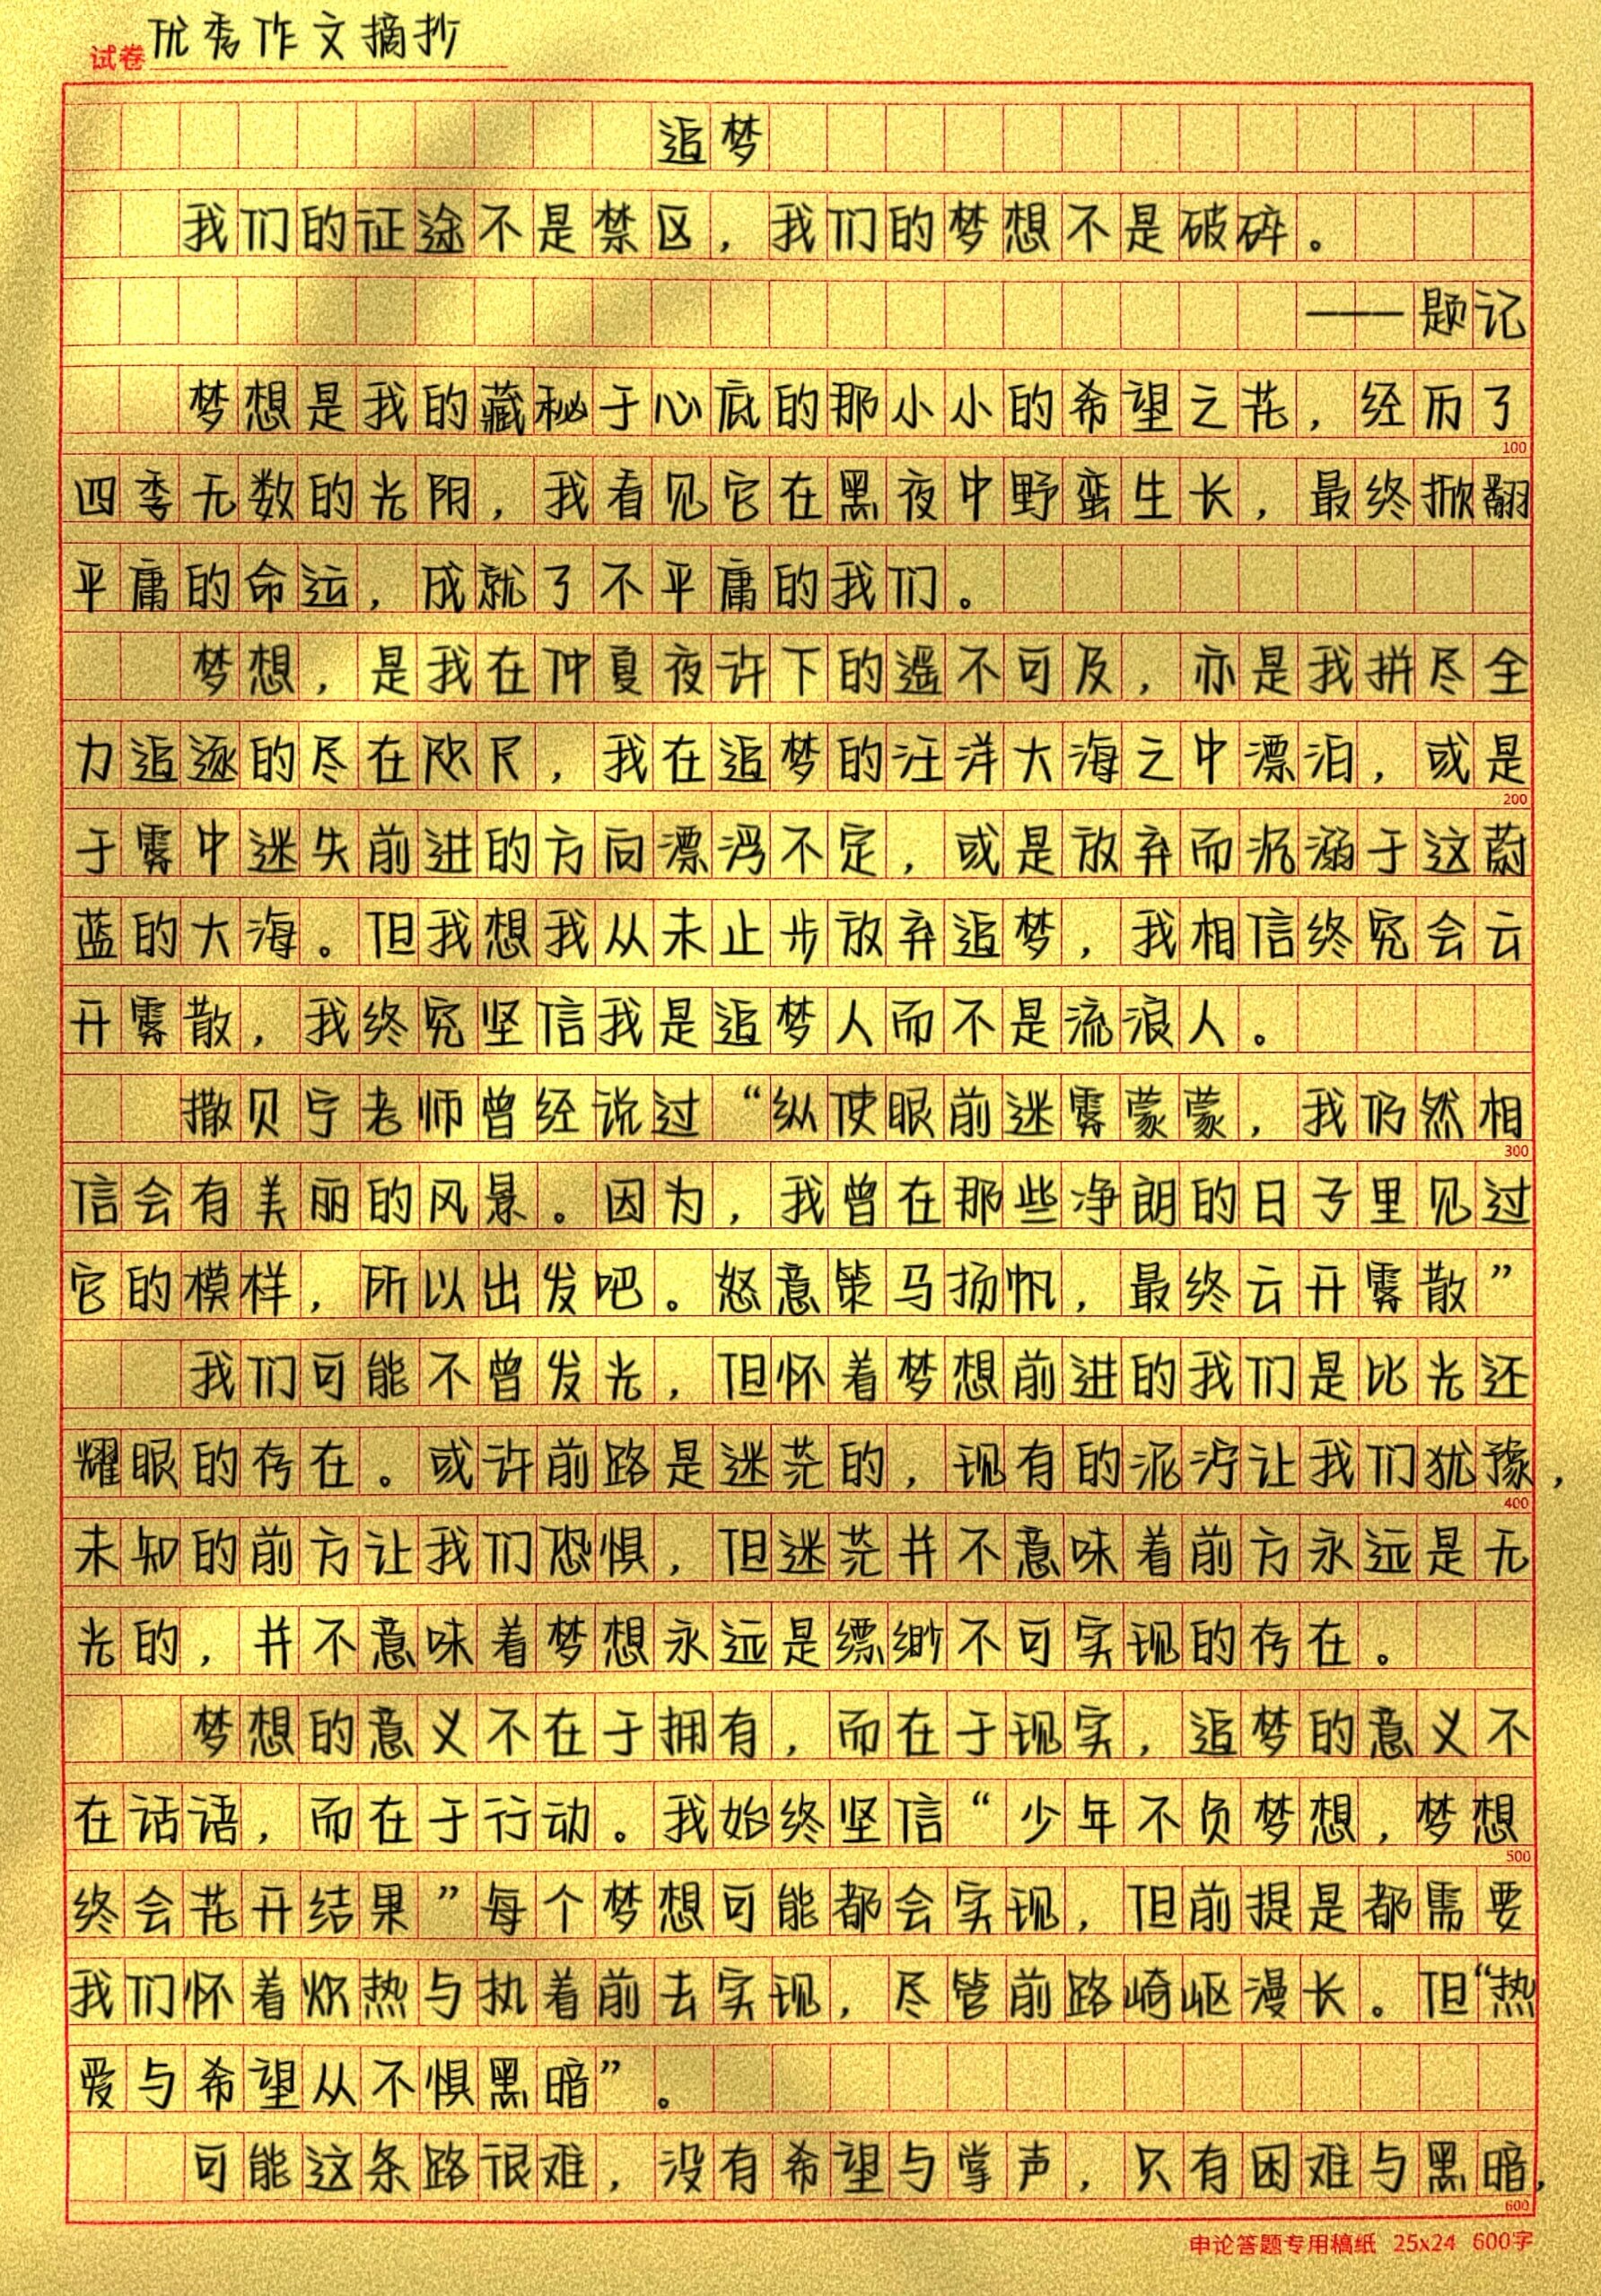 试卷 优秀作文摘抄
追梦
我们的征途不是禁区，我们的梦想不是破碎。
——题记
梦想是我的藏秘于心底的那小小的希望之花，经历了
100
四季无数的光阴，我看见它在黑夜中野蛮生长，最终掀翻
平庸的命运，成就了不平庸的我们。
梦想，是我在仲夏夜许下的遥不可及，亦是我拼尽全
力追逐的尽在咫尺，我在追梦的汪洋大海之中漂泊，或是
200
于雾中迷失前进的方向漂浮不定，或是放弃而沉溺于这蔚
蓝的大海。但我想我从未止步放弃追梦，我相信终究会云
开雾散，我终究坚信我是追梦人而不是流浪人。
撒贝宁老师曾经说过“纵使眼前迷雾蒙蒙，我仍然相
300
信会有美丽的风景。因为，我曾在那些净朗的日子里见过
它的模样，所以出发吧。怒意策马扬帆，最终云开雾散”
我们可能不曾发光，但怀着梦想前进的我们是比光还
耀眼的存在。或许前路是迷茫的，现有的泥泞让我们犹豫，
400
未知的前方让我们恐惧，但迷茫并不意味着前方永远是无
光的，并不意味着梦想永远是缥缈不可实现的存在。
梦想的意义不在于拥有，而在于现实，追梦的意义不
在话语，而在于行动。我始终坚信“少年不负梦想，梦想
500
终会花开结果”每个梦想可能都会实现，但前提是都需要
我们怀着炽热与执着前去实现，尽管前路崎岖漫长。但“热
爱与希望从不惧黑暗”。
可能这条路很难，没有希望与掌声，只有困难与黑暗，
600
申论答题专用稿纸 25x24 600字